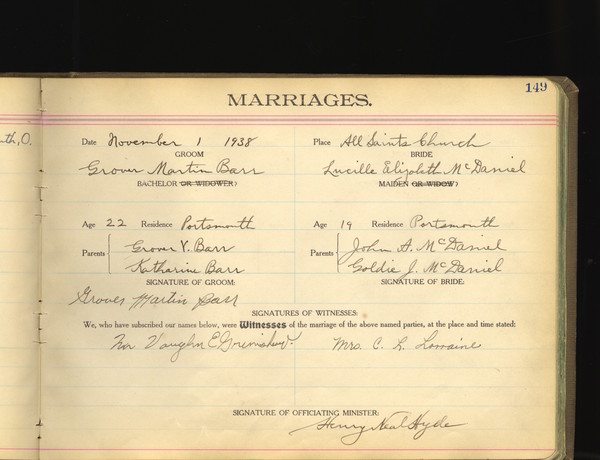 149
MARRIAGES.
th, O.
Date November 1 1938 Place All Saints Church
GROOM BRIDE
Grover Martin Barr Lucille Elizabeth McDaniel
BACHELOR OR WIDOWER? MAIDEN OR WIDOW?
Age 22 Residence Portsmouth Age 19 Residence Portsmouth
Parents Grover V. Barr John A. McDaniel
Katharine Barr Goldie J. McDaniel
SIGNATURE OF GROOM: SIGNATURE OF BRIDE:
Grover Martin Barr
SIGNATURES OF WITNESSES:
We, who have subscribed our names below, were Witnesses of the marriage of the above named parties, at the place and time stated:
Vaughn E Mrs. C. L. Lorraine
SIGNATURE OF OFFICIATING MINISTER:
Henry Neal Hyde